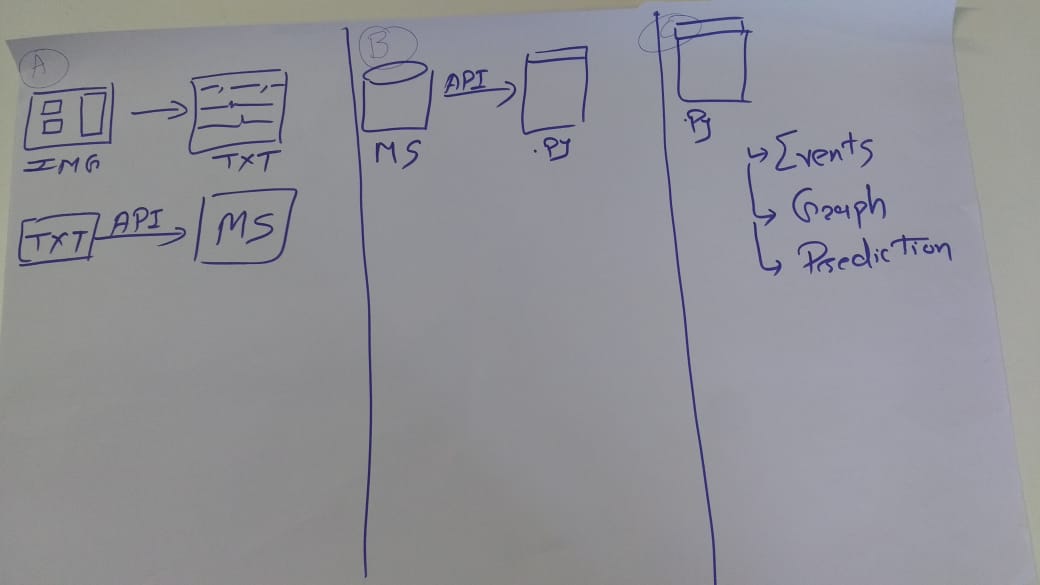 A
IMG
TXT
TXT API MS
B
API
MS
.Py
C
.Py
Events
Graph
Prediction